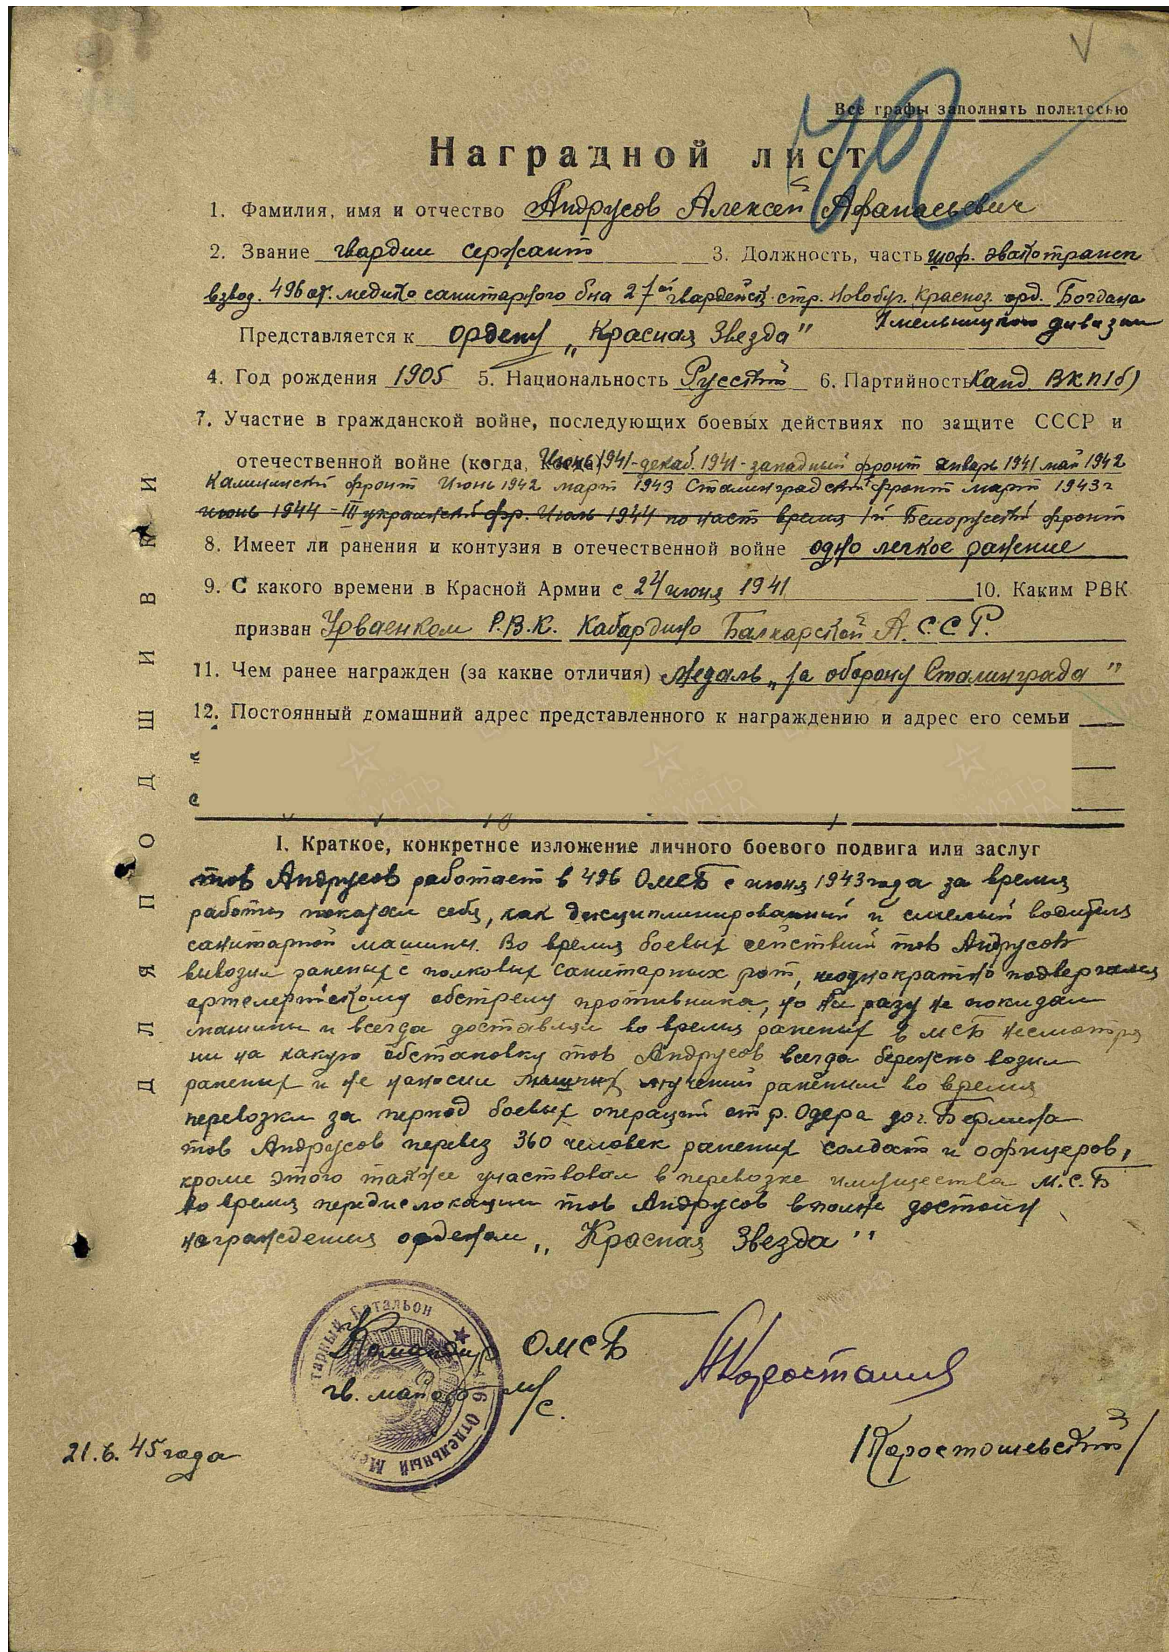 Все графы заполнять полностью
Наградной лист
1. Фамилия, имя и отчество Андрусов Алексей Афанасьевич
2. Звание гвардии сержант 3. Должность, часть шоф. эвакотрансп
взвод. 496 от. медико санитарного б-на 27ой гвардейск. стр. Новобуг. Красноз. орд. Богдана
Хмельницкого дивизии
Представляется к ордену „Красная Звезда"
4. Год рождения 1905 5. Национальность Русский 6. Партийность Канд. ВКП(б)
7. Участие в гражданской войне, последующих боевых действиях по защите СССР и
отечественной войне (когда, Июнь 1941-декаб. 1941-западный фронт январь 1941 май 1942
Калининский фронт Июнь 1942 март 1943 Сталинградский фронт март 1943г
июнь 1944 - III украинский фр. Июль 1944 по наст время 1й Белорусский фронт
8. Имеет ли ранения и контузия в отечественной войне одно легкое ранение
9. С какого времени в Красной Армии с 24 июня 1941 10. Каким РВК
призван Урваенком Р.В.К. Кабардино Балкарской А.С.С.Р.
11. Чем ранее награжден (за какие отличия) Медаль „за оборону Сталинграда"
12. Постоянный домашний адрес представленного к награждению и адрес его семьи
I. Краткое, конкретное изложение личного боевого подвига или заслуг
тов Андрусов работает в 496 ОМСБ с июня 1943 года за время
работы показал себя, как дисциплинированный и смелый водитель
санитарной машины. Во время боевых действий тов Андрусов
вывозил раненых с полковых санитарных рот, неоднократно подвергался
артелерийскому обстрелу противника, но ни разу не покидал
машины и всегда доставлял во время раненых в МСБ несмотря
ни на какую обстановку тов Андрусов всегда бережно возил
раненых и не наносил лишних мучений раненым во время
перевозки за период боевых операций от р. Одера до г. Берлина
тов Андрусов перевез 360 человек раненых солдат и офицеров,
кроме этого также участвовал в перевозке имущества М.С.Б
во время передислокации тов Андрусов вполне достоин
награждения орденом „Красная Звезда"
Командир ОМСБ
гв. майор м/с.
21.6.45 года
/Коростошевский/
496 Отдельный Медико-санитарный батальон
ДЛЯ ПОДШИВКИ